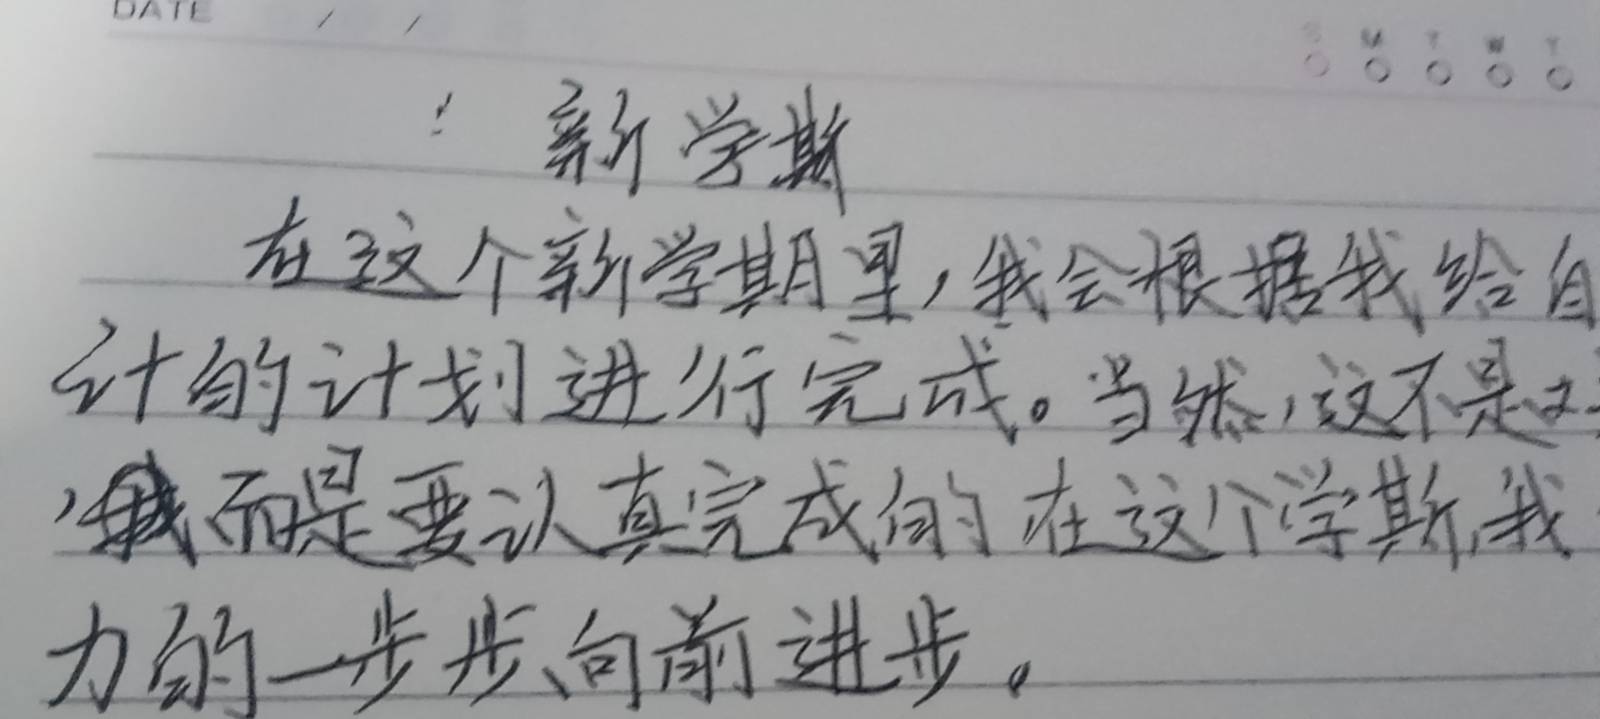 DATE / /
S M T W T
! 新学斯
在这个新学期里，我会根据我给自
计的计划进行完成。当然，这不是
，我而是要认真完成的在这个学斯，我
力的一步步向前进步。